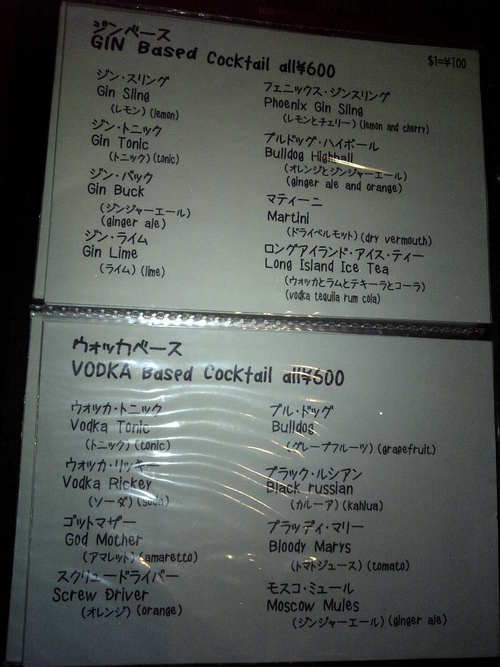 ジンベース
GIN Based Cocktail all¥600
$1=¥100
ジン・スリング
Gin Sling
(レモン)(lemon)
ジン・トニック
Gin Tonic
(トニック)(tonic)
ジン・バック
Gin Buck
(ジンジャーエール)
(ginger ale)
ジン・ライム
Gin Lime
(ライム)(lime)
フェニックス・ジンスリング
Phoenix Gin Sling
(レモンとチェリー)(lemon and cherry)
ブルドッグ・ハイボール
Bulldog Highball
(オレンジとジンジャーエール)
(ginger ale and orange)
マティーニ
Martini
(ドライベルモット)(dry vermouth)
ロングアイランド・アイス・ティー
Long Island Ice Tea
(ウォッカとラムとテキーラとコーラ)
(vodka tequila rum cola)
ウォッカベース
VODKA Based Cocktail all¥600
ウォッカ・トニック
Vodka Tonic
(トニック)(tonic)
ウォッカ・リッキー
Vodka Rickey
(ソーダ)(soda)
ゴットマザー
God Mother
(アマレット)(amaretto)
スクリュードライバー
Screw Driver
(オレンジ)(orange)
ブル・ドッグ
Bulldog
(グレープフルーツ)(grapefruit)
ブラック・ルシアン
Black russian
(カルーア)(kahlua)
ブラッディ・マリー
Bloody Marys
(トマトジュース)(tomato)
モスコ・ミュール
Moscow Mules
(ジンジャーエール)(ginger ale)